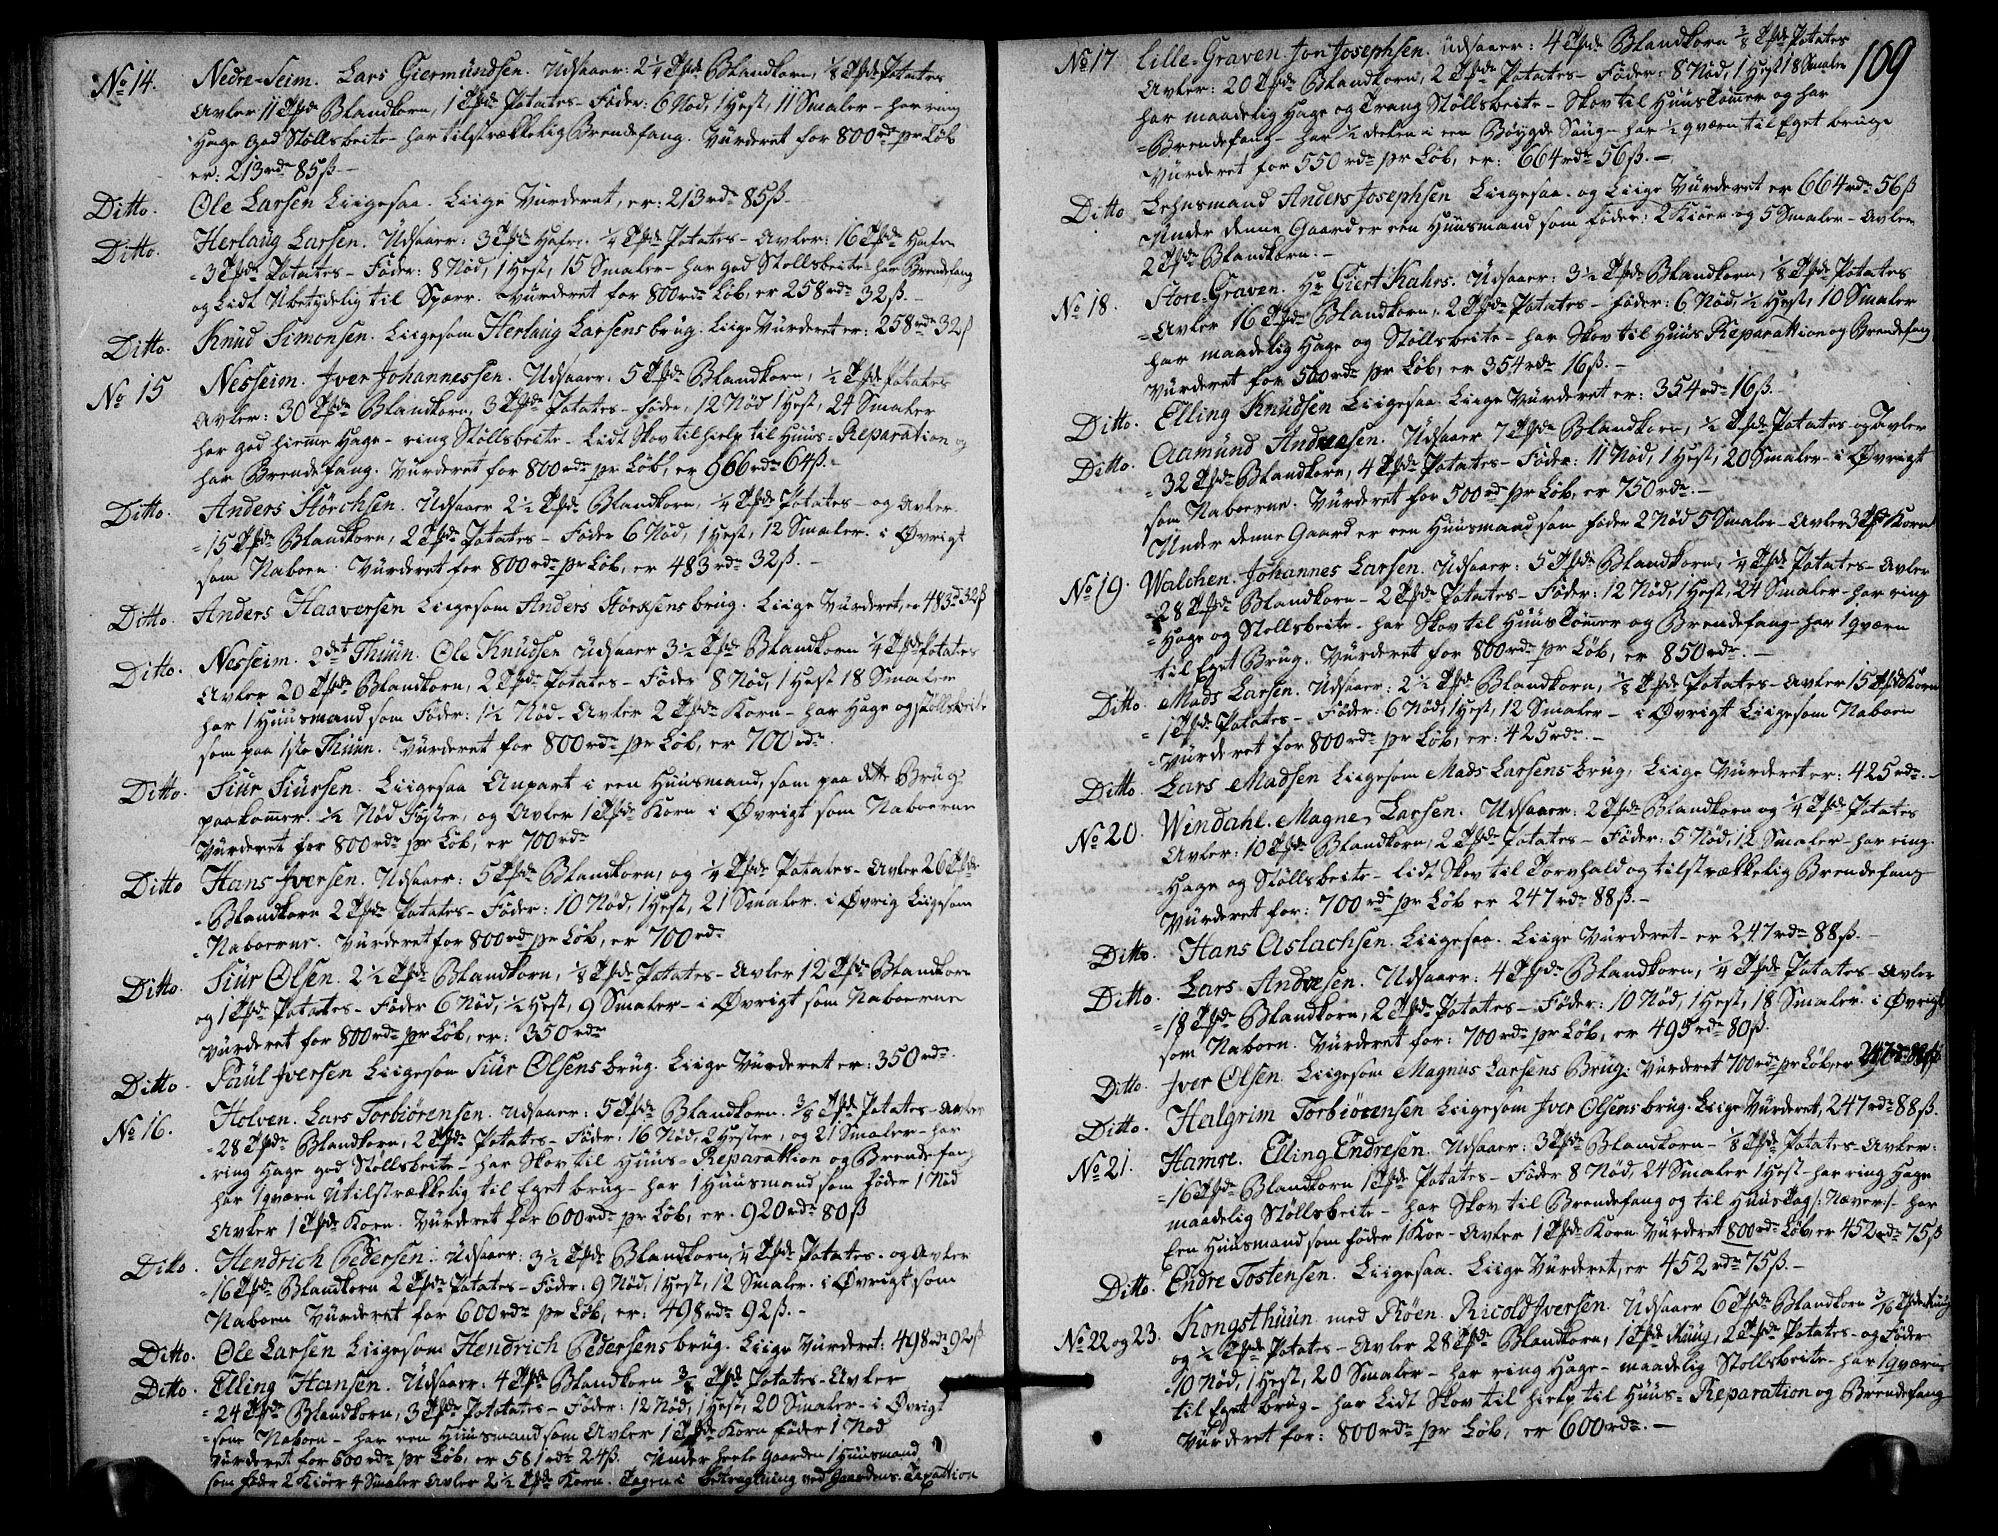 No 14. Nedre-Seim. Lars Giermundsen. Udsaaer: 2 1/4 Tønde Blandkorn, 1/8 Tønde Potates
Avler 11 Tønde Blandkorn, 1 Tønde Potates - Føder: 6 Nød, 1 Hest, 11 Smaler - har ring
Hage god Støllsbeite - har tilstrækkelig Brendefang. Vurderet for 800 rdr pr Løb
er: 213 rdr 85 ß. -
Ditto. Ole Larsen Liigesaa. Liige Vurderet, er: 213 rdr 85 ß. -
Ditto. Herlaug Larsen. Udsaaer: 3 Tønde Hafre, 1/4 Tønde Potates - Avler: 16 Tønde Hafre
3 Tønde Potates - Føder: 8 Nød, 1 Hest, 15 Smaler - har god Støllsbeite - har Brendefang
og Lidt Ubetydelig til Spærr. Vurderet for 800 rdr Løb, er 258 rdr 32 ß. -
Ditto. Knud Simonsen. Liigesom Herlaug Larsens brug. Liige Vurderet er: 258 rdr 32 ß
No 15 Nesseim. Iver Johannessen. Udsaaer: 5 Tønde Blandkorn, 1/2 Tønde Potates
Avler: 30 Tønde Blandkorn, 3 Tønde Potates - Føder, 12 Nød 1 Hest, 24 Smaler
har god hieme Hage - ring Støllsbeite - Lidt Skov til hielp til Huus = Reparation og
har Brendefang. Vurderet for 800 rdr pr Løb, er 966 rdr 64 ß. -
Ditto. Anders Størchsen. Udsaaer 2 1/2 Tønde Blandkorn, 1/4 Tønde Potates - og Avler
= 15 Tønde Blandkorn, 2 Tønde Potates - Føder 6 Nød, 1 Hest, 12 Smaler. i Øvrigt
som Naboen. Vurderet for 800 rdr pr Løb, er 483 rdr 32 ß. -
Ditto. Anders Haaversen Liigesom Anders Størksens brug. Liige Vurderet, er 483 rd 32 ß
Ditto. Nesseim. 2det Thuun. Ole Knudsen Udsaaer 3 1/2 Tønde Blandkorn 1/4 Tønde Potates
Avler 20 Tønde Blandkorn, 2 Tønde Potates - Føder 8 Nød, 1 Hest 18 Smaler
har 1 Huusmand som Føder: 1 1/2 Nød - Avler 2 Tønde Korn - har Hage og støllsbeite
som paa 1ste Thuun. Vurderet for 800 rdr pr Løb, er 700 rdr.
Ditto. Siur Siursen. Liigesaa Anpart i een Huusmand, som paa dette Brug
paakommer. 1/2 Nød Føster, og Avler 1 Tønde Korn i Øvrigt som Naboerne
Vurderet for 800 rdr pr Løb, er 700 rdr
Ditto Hans Iversen. Udsaaer: 5 Tønde Blandkorn, og 1/4 Tønde Potates - Avler 26 Tønde
= Blandkorn 2 Tønde Potates - Føder: 10 Nød, 1 Hest, 21 Smaler. i Øvrig Liigesom
= Naboerne. Vurderet for 800 rdr pr Løb, er 700 rdr
Ditto. Siur Olsen. 2 1/2 Tønde Blandkorn, 1/8 Tønde Potates - Avler 12 Tønde Blandkorn
og 1 Tønde Potates - Føder 6 Nød, 1/2 Hest, 9 Smaler - i Øvrigt som Naboerne
Vurderet for 800 rdr pr Løb, er: 350 rdr
Ditto. Paul Iversen Liigesom Siur Olsens brug. Liige Vurderet er: 350 rdr.
No 16. Holven. Lars Torbiørensen. Udsaaer: 5 Tønde Blandkorn. 3/8 Tønde Potates - Avler
= 28 Tønde Blandkorn, 2 Tønde Potates - Føder: 16 Nød, 2 Hester, og 21 Smaler - har
ring Hage god Støllsbeite - har Skov til Huus = Reparattion og Brendefang
har 1 qværn Utilstrækkelig til Eget brug - har 1 Huusmand som føder 1 Nød
Avler 1 Tønde Korn. Vurderet for 600 rdr pr Løb, er. 920 rdr 80 ß
Ditto. Hendrich Pedersen. Udsaaer: 3 1/2 Tønde Blandkorn, 1/4 Tønde Potates. og Avler
= 16 Tønde Blandkorn 2 Tønde Potates - Føder: 9 Nød, 1 Hest, 12 Smaler. i Øvrigt som
Naboen Vurderet for 600 rdr pr Løb, er: 498 rdr 92 ß. -
Ditto. Ole Larsen Liigesom Hendrich Pedersens brug. Liige Vurderet: 498 rdr 92 ß
Ditto. Elling Hansen. Udsaaer: 4 Tønde Blandkorn 3/8 Tønde Potates - Avler
= 24 Tønde Blandkorn, 3 Tønde Pototates - Føder: 12 Nød, 1 Hest, 20 Smaler - i Øvrigt
= som Naboen - har een Huusmand som Avler 1 Tønde Korn føder 1 Nød
Vurderet for 600 rdr pr Løb, er 581 rdr 24 ß. Under heele Gaarden 1 Huusmand
som føder 2 Kiøer 4 Smaler Avler 2 1/2 Tønde Korn. Tagen i Betragtning ved Gaardens Taxattion
109
No 17 Lille-Graven. Jon Josephsen. Udsaaer: 4 Tønde Blandkorn 3/8 Tønde Potates
Avler: 20 Tønde Blandkorn, 2 Tønde Potates - Føder: 8 Nød, 1 Hest 18 Smaler
har maadelig Hage og Trang Støllsbeite - Skov til Huustømer og har
= Brendefang - har 1/2 deelen i een Bøygde Saug - har 1/2 qværn til Eget bruge
Vurderet for 550 rdr pr Løb, er: 664 rdr 56 ß. -
Ditto Lehnsmand Anders Josephsen Liigesaa. og Liige Vurderet er 664 rdr 56 ß
Under denne Gaard er een Huusmand som Føder: 2 Kiøer og 5 Smaler - Avler
2 Tønde Blandkorn. -
No 18. Store-Graven. Hr Giert Kahrs. Udsaaer: 3 1/2 Tønde Blandkorn, 1/8 Tønde Potates
= Avler 16 Tønde Blandkorn, 2 Tønde Potates - Føder: 6 Nød, 1/2 Hest, 10 Smaler
har maadelig Hage og Støllsbeite - har Skov til Huus Reparattion og Brendefang
Vurderet for 500 rdr pr Løb, er 354 rdr 16 ß. -
Ditto. Elling Knudsen Liigesaa. Liige Vurderet er: 354 rdr 16 ß. -
Ditto. Aamund Andersen. Udsaaer 7 Tønde Blandkorn, 1/2 Tønde Potates - og Avler
= 32 Tønde Blandkorn, 4 Tønde Potates - Føder: 11 Nød, 1 Hest, 20 Smaler - i Øvrigt
som Naboerne. Vurderet for 500 rd pr Løb, er 750 rdr. -
Under denne Gaard er een Huusmand som føder 2 Nød 5 Smaler - Avler 3 Tønde Korn
No 19. Walchen. Johannes Larsen. Udsaaer: 5 Tønde Blandkorn, 1/4 Tønde Potates - Avler
= 28 Tønde Blandkorn - 2 Tønde Potates - Føder: 12 Nød, 1 Hest, 24 Smaler - har ring
= Hage og Støllsbeite - har Skov til Huustømer og Brendefang - har 1 qværn
til Eget Brug. Vurderet for 800 rdr pr Løb, er 850 rdr. -
Ditto Mads Larsen. Udsaaer: 2 1/2 Tønde Blandkorn, 1/8 Tønde Potates - Avler 15 Tønde Korn
= 1 Tønde Potates - Føder: 6 Nød, 1 Hest, 12 Smaler - i Øvrigt Liigesom Naboen
Vurderet for 800 rdr pr Løb, er: 425 rdr. -
Ditto. Lars Madsen Liigesom Mads Larsens brug, Liige Vurderet er: 425 rdr. -
No 20. Windahl. Magne Larsen. Udsaaer: 2 Tønde Blandkorn og 1/4 Tønde Potates
Avler: 10 Tønde Blandkorn, 2 Tønde Potates - Føder: 5 Nød, 12 Smaler - har ring
= Hage og Støllsbeite - Lidt Skov til Torvhald og tilstrækkelig Brendefang
Vurderet for: 700 rdr pr Løb er 247 rdr 88 ß. -
Ditto. Hans Aslachsen. Liigesaa. Liige Vurderet - er 247 rdr 88 ß. -
Ditto. Lars Andresen. Udsaaer: 4 Tønde Blandkorn, 1/4 Tønde Potates - Avler
= 18 Tønde Blandkorn, 2 Tønde Potates - Føder: 10 Nød, 1 Hest, 18 Smaler. i Øvrigt
som Naboen. Vurderet for: 700 rdr pr Løb, er 495 rdr 80 ß.
Ditto. Iver Olsen. Liigesom Magnus Larsens Brug. Vurderet 700 rdr pr Løb, er 247 rdr 88 ß
Ditto. Heilgrim Torbiørensen Liigesom Iver Olsens brug. Liige Vurderet, 247 rdr 88 ß.
No 21. Hamre. Elling Endresen. Udsaaer: 3 Tønde Blandkorn - 1/8 Tønde Potates - Avler:
= 16 Tønde Blandkorn 1 Tønde Potates - Føder 8 Nød, 24 Smaler 1 Hest - har ring Hage
maadelig Støllsbeite - har Skov til Brendefang og til Huustag /: Næver :/ - har
Een Huusmand som føder 1 Koe - Avler 1 Tønde Korn Vurderet 800 rdr Løb, er 452 rdr 75 ß
Ditto. Endre Tostensen. Liigesaa. Liige Vurderet, er 452 rdr 75 ß. -
No 22 og 23. Kongsthuun med Røen. Ricold Iversen. Udsaaer 6 Tønde Blandkorn 3/16 Tønde Ruug
og 1/2 Tønde Potates - Avler 28 Tønde Blandkorn, 1 Tønde Ruug, 2 Tønde Potates - og Føder
= 10 Nød, 1 Hest, 20 Smaler - har ring Hage - maadelig Støllsbeite - har 1 qværn
til Eget brug - har Lidt Skov til hielp til Huus = Reparation og Brendefang
Vurderet for: 800 rdr pr Løb, er 600 rdr. -